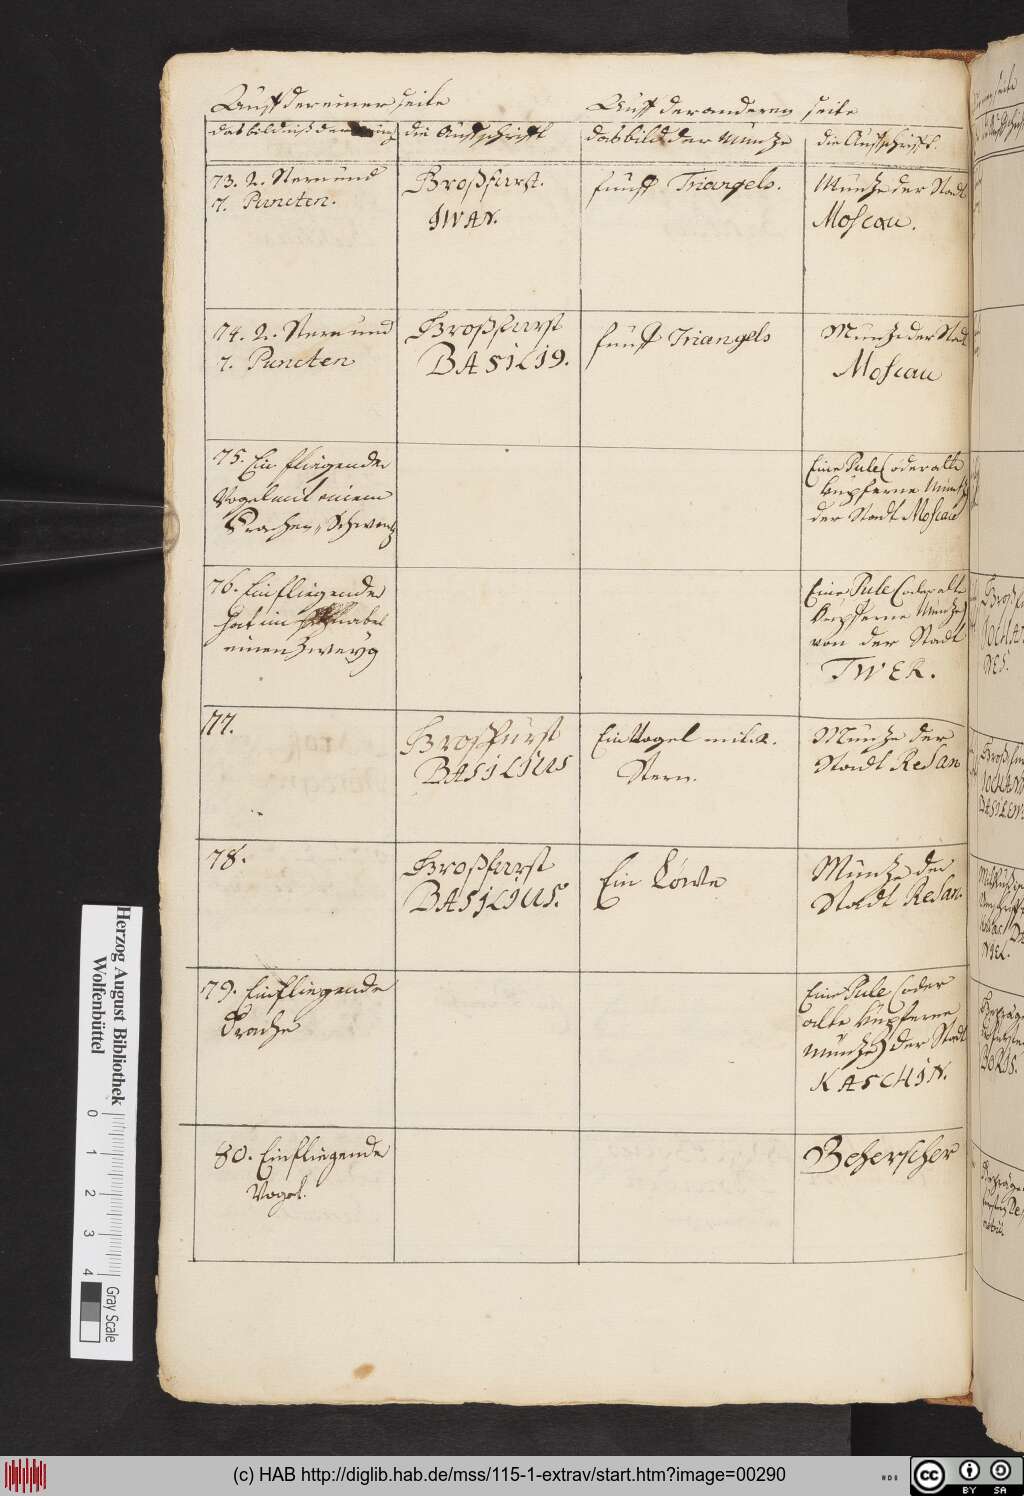 Auff der einer seite
Auff der anderen seite
das bildniß der
die Auffschrifft
das bild der Müntze
die Auffschrifft.
73. 2. Stern und
7. Puncten.
Großfürst.
IWAN.
fünff Triangels.
Müntze der Stadt
Moscau.
74. 2. Stern und
7. Puncten
Großfürst
BASILI9.
fünff Triangels
Müntze der Stadt
Moscau
75. Ein fliegender
Vogel mit einem
Drachen-Schwantz
Eine Pule (oder alte
kupferne Müntz
der Stadt Moscau
76. Ein fliegender
hat im Schnabel
einen Zweyg
Eine Pule (oder alte
kupferne Müntze)
von der Stadt
TWER.
77.
Großfürst
BASILIUS
Ein Vogel mit 2.
Stern.
Müntze der
Stadt Resan
78.
Großfürst
BASILIUS.
Ein Löwe
Müntze der
Stadt Resan.
79. Ein fliegende
Drache
Eine Pule (oder
alte kupferne
müntze) der Stadt
KASCHIN.
80. Ein fliegende
Vogel.
Beherscher
Herzog August Bibliothek
Wolfenbüttel
0 1 2 3 4
Gray Scale
(c) HAB http://diglib.hab.de/mss/115-1-extrav/start.htm?image=00290
cc BY SA